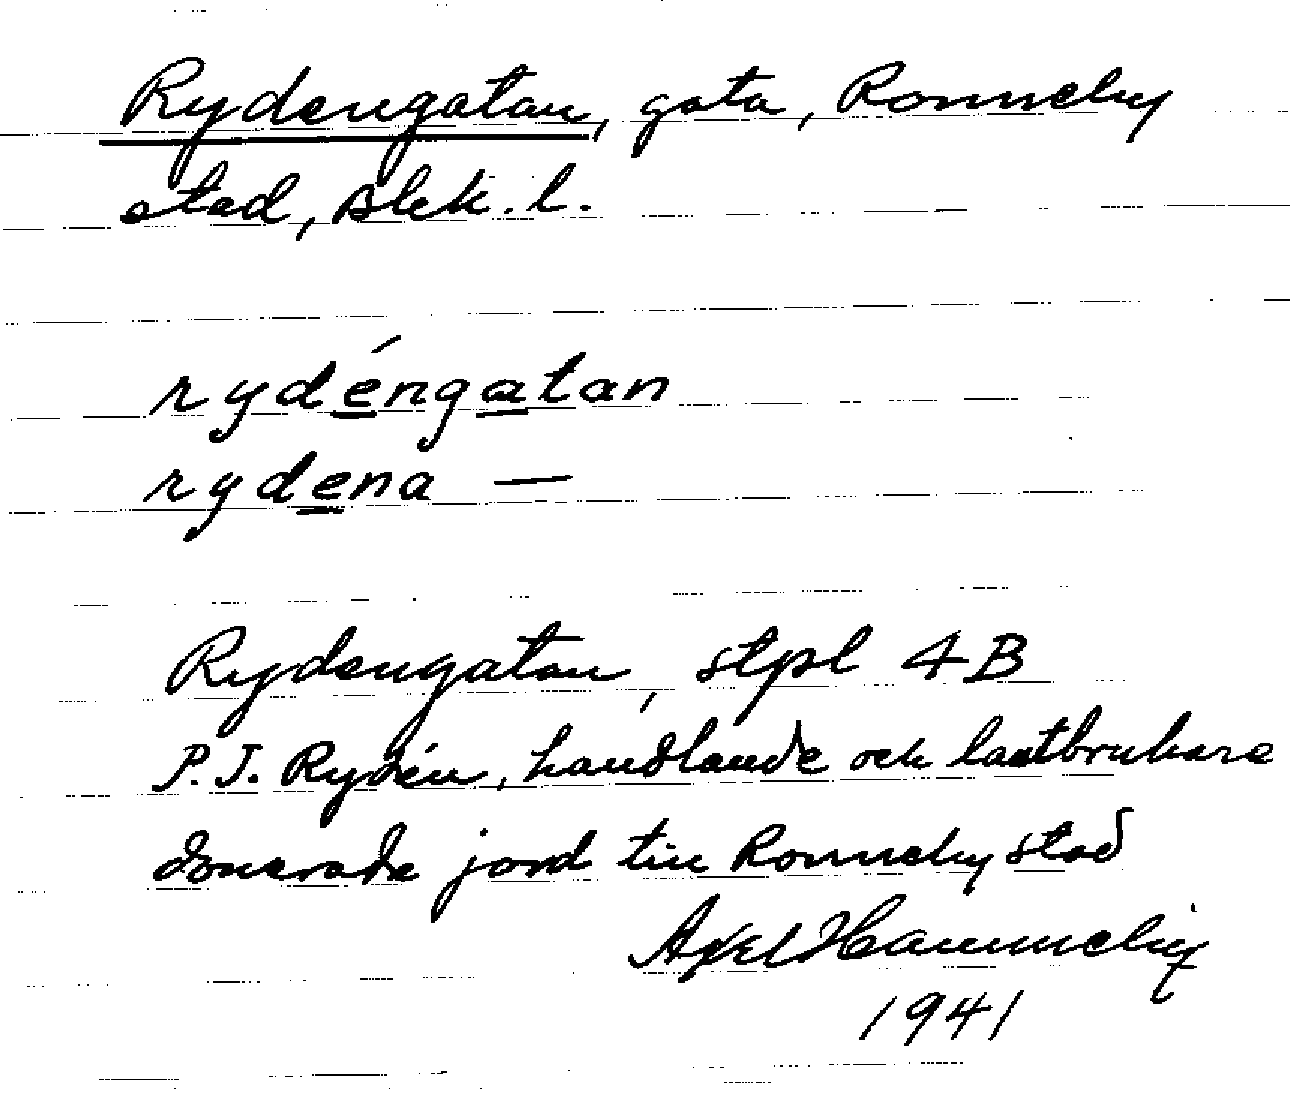 Rydengatan, gata, Ronneby
stad, Blek. l.
rydéngatan
rydena —
Rydengatan, stpl 4B
P. J. Rydén, handlande och lantbrukare
donerade jord till Ronneby stad
Axel Hammeby
1941